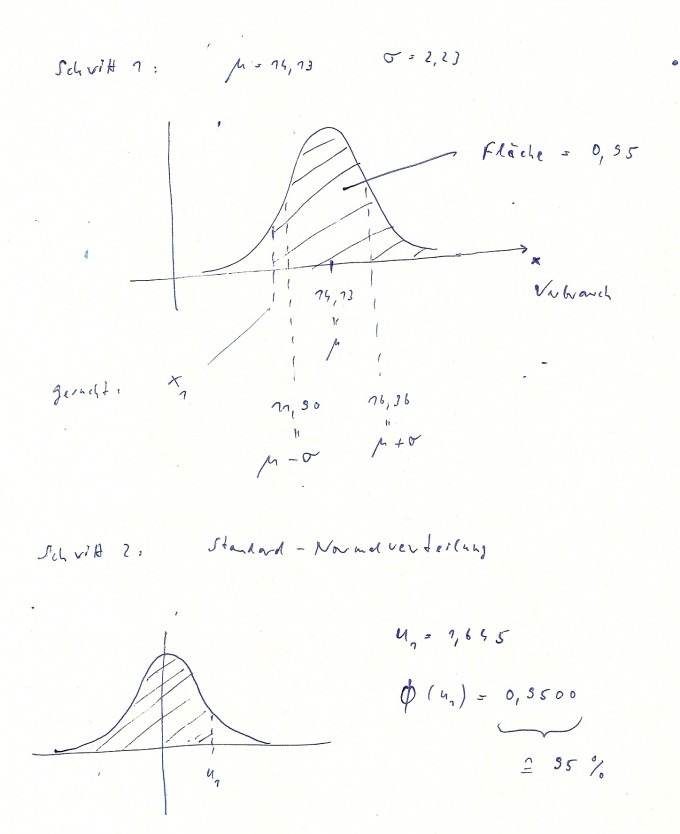 Schritt 1: μ = 14,13 σ = 2,23
Fläche = 0,95
x
Verbrauch
14,13
"
μ
gesucht: x₁
11,90 16,36
" "
μ - σ μ + σ
Schritt 2: Standard - Normalverteilung
u₁ = 1,645
ϕ (u₁) = 0,9500
≙ 95 %
u₁